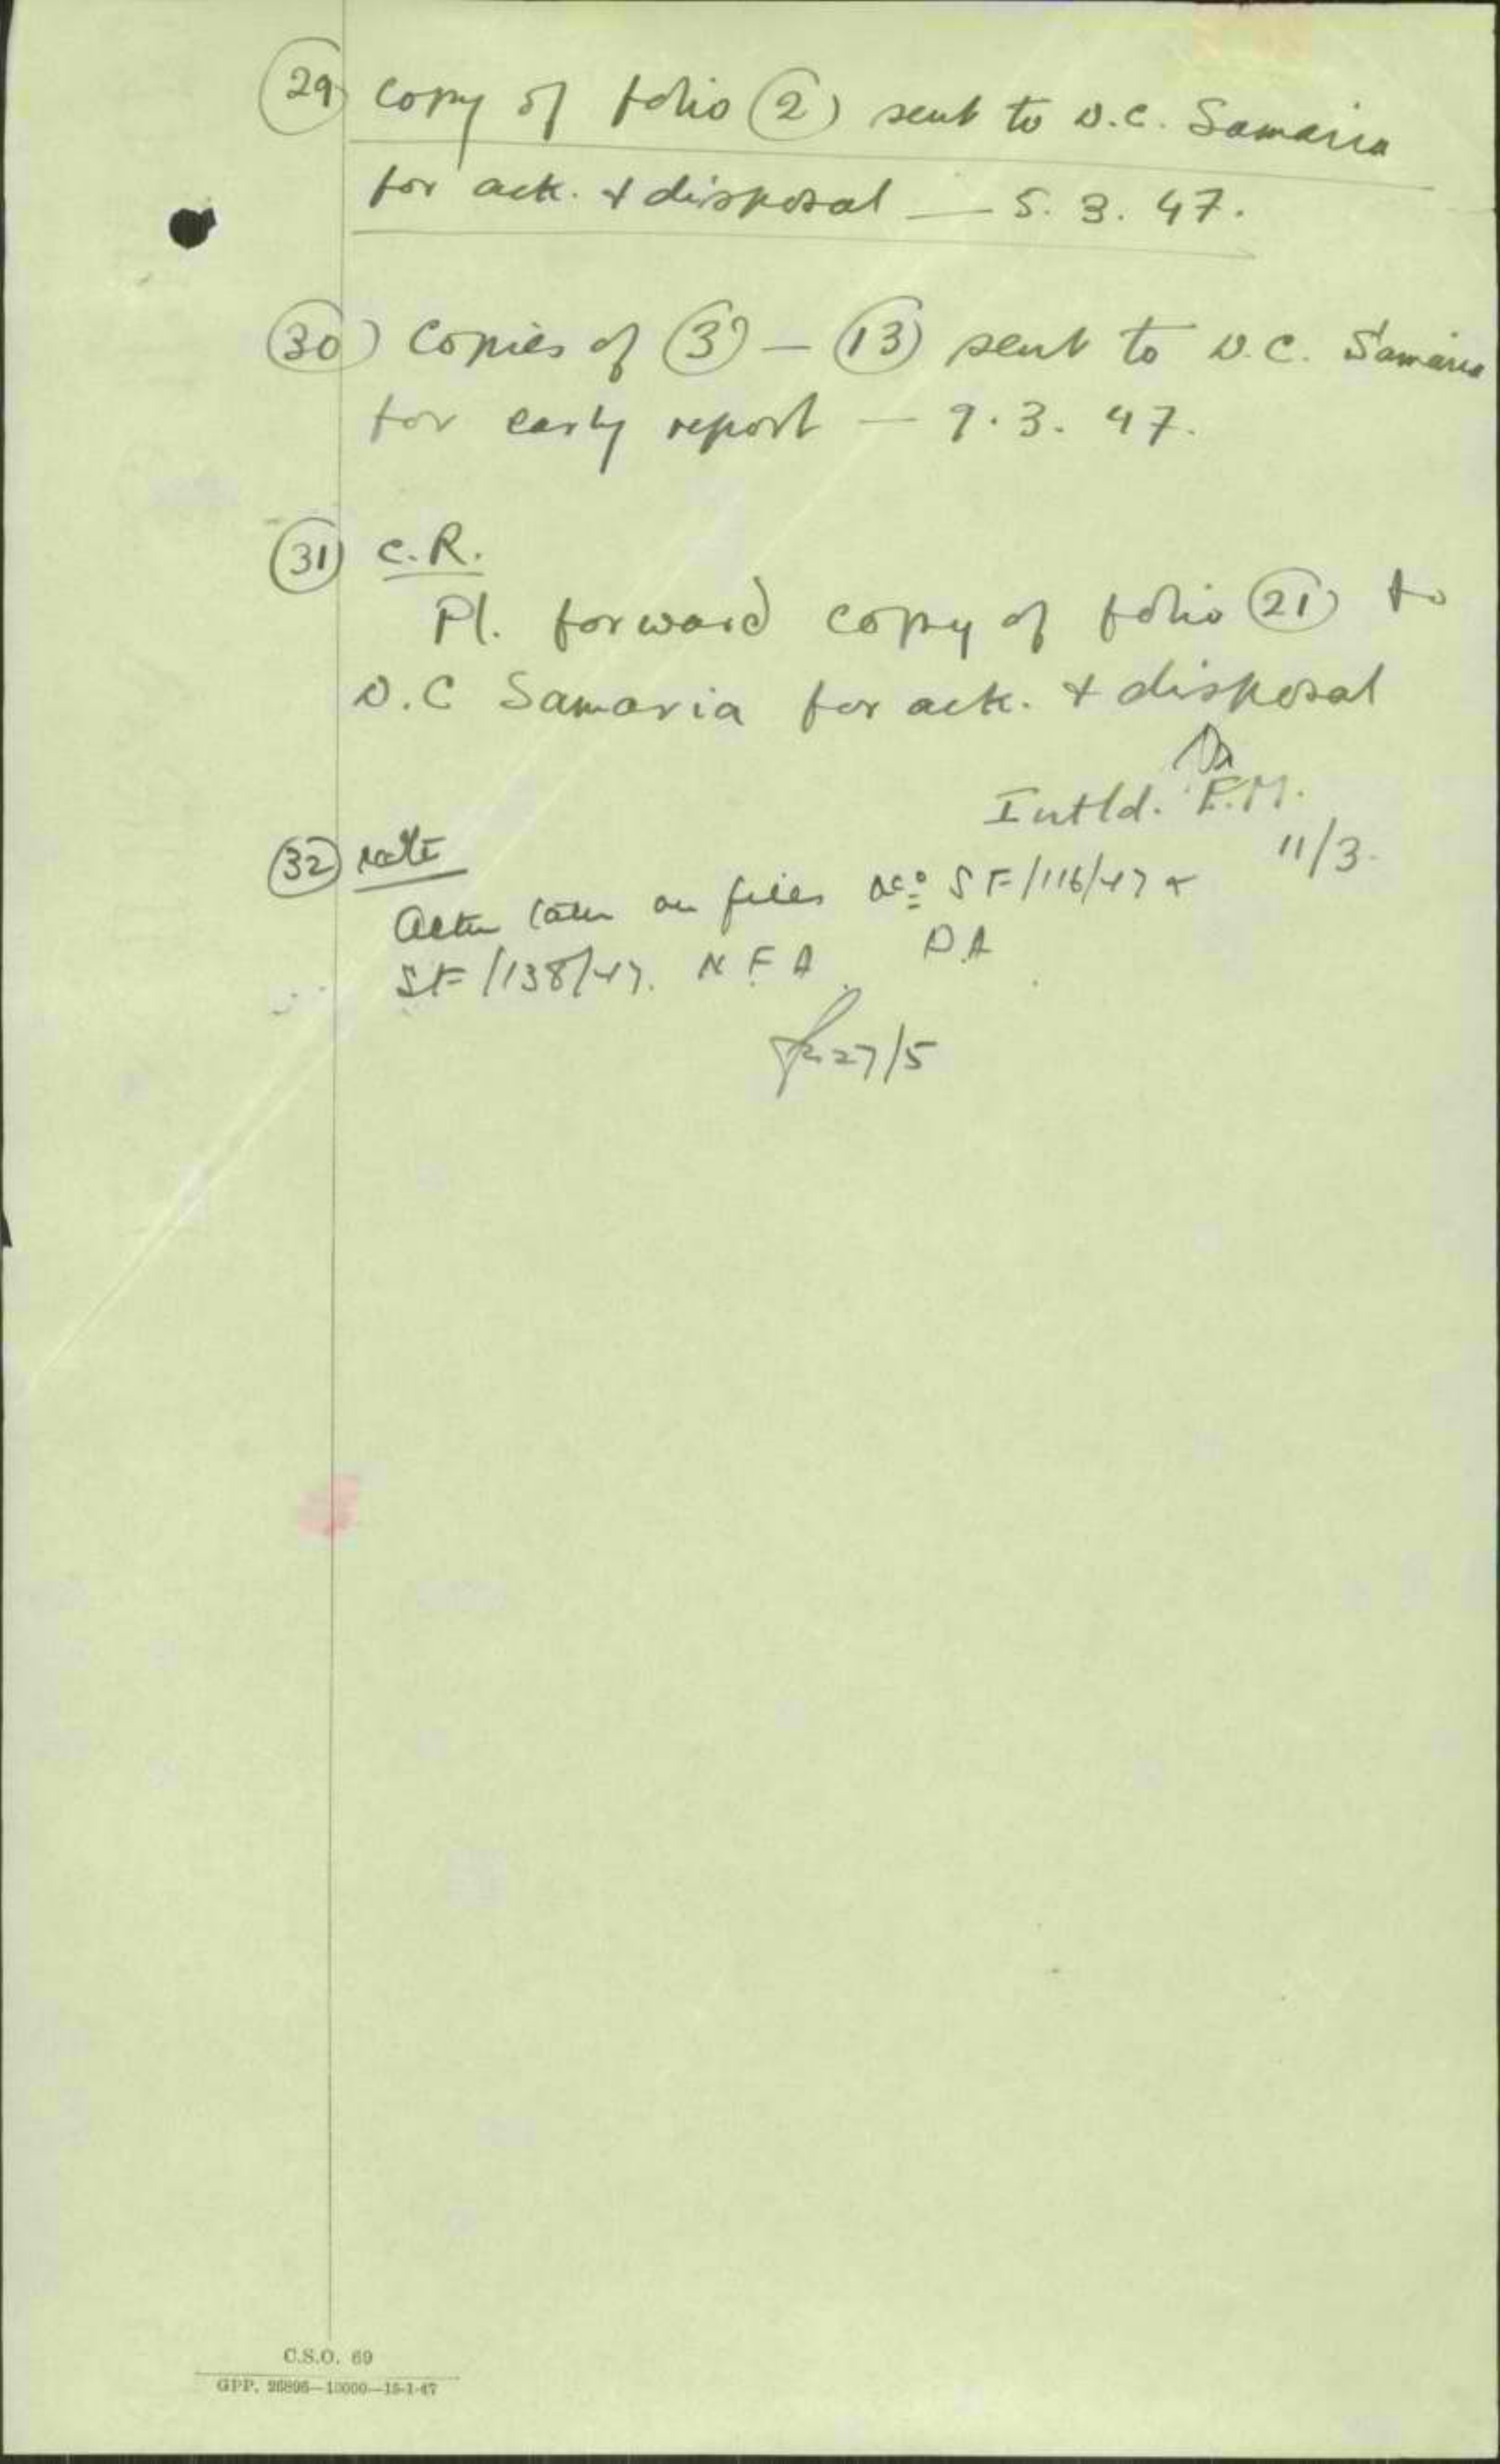 (29) Copy of folio (2) sent to D.C. Samaria
for ack. & disposal — 5. 3. 47.
(30) Copies of (3) — (13) sent to D.C. Samaria
for early report — 9. 3. 47.
(31) C.R.
Pl. forward copy of folio (21) to
D.C Samaria for ack. & disposal
Intld. F.M.
11/3.
(32) Note
Action taken on files No: SF/116/47 &
SF/138/47. N.F.A. P.A
27/5
C.S.O. 69
GPP. 26896—10000—15-1-47